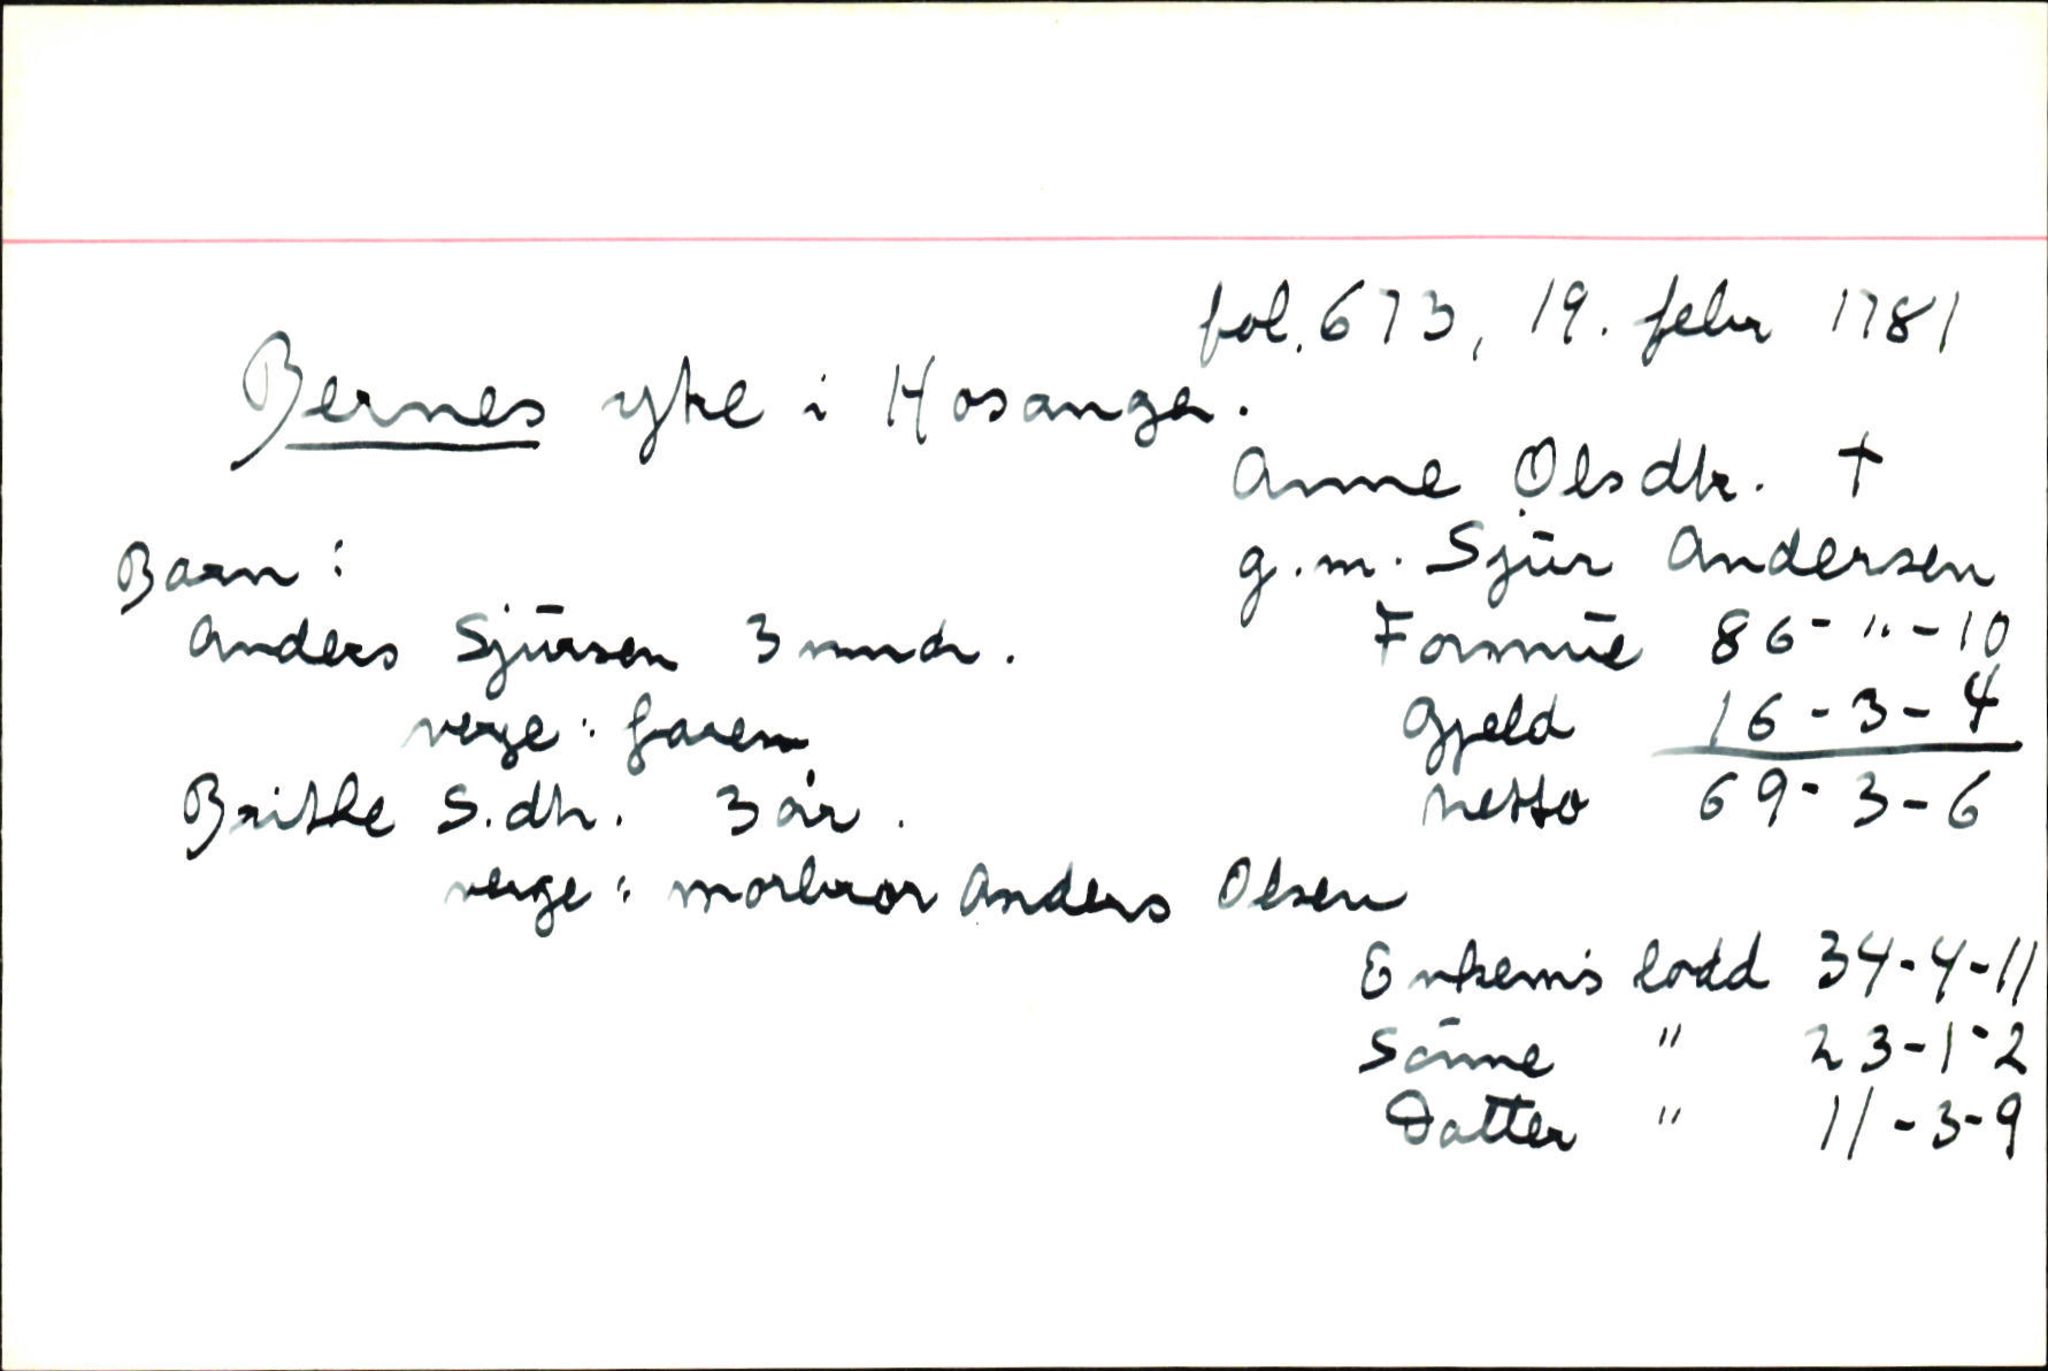 fol. 673, 19. febr 1781
Bernes ytre i Hosanger.
Anne Olsdtr. †
g.m. Sjūr Andersen
Barn:
Anders Sjūrsen 3 mndr.
Formūe 86-"-10
verge: faren
Gjeld 16-3-4
Brithe S.dtr. 3 år.
Netto 69-3-6
verge: morbror Anders Olsen
Enkem's lodd 34-4-11
Sönne " 23-1-2
Datter " 11-3-9